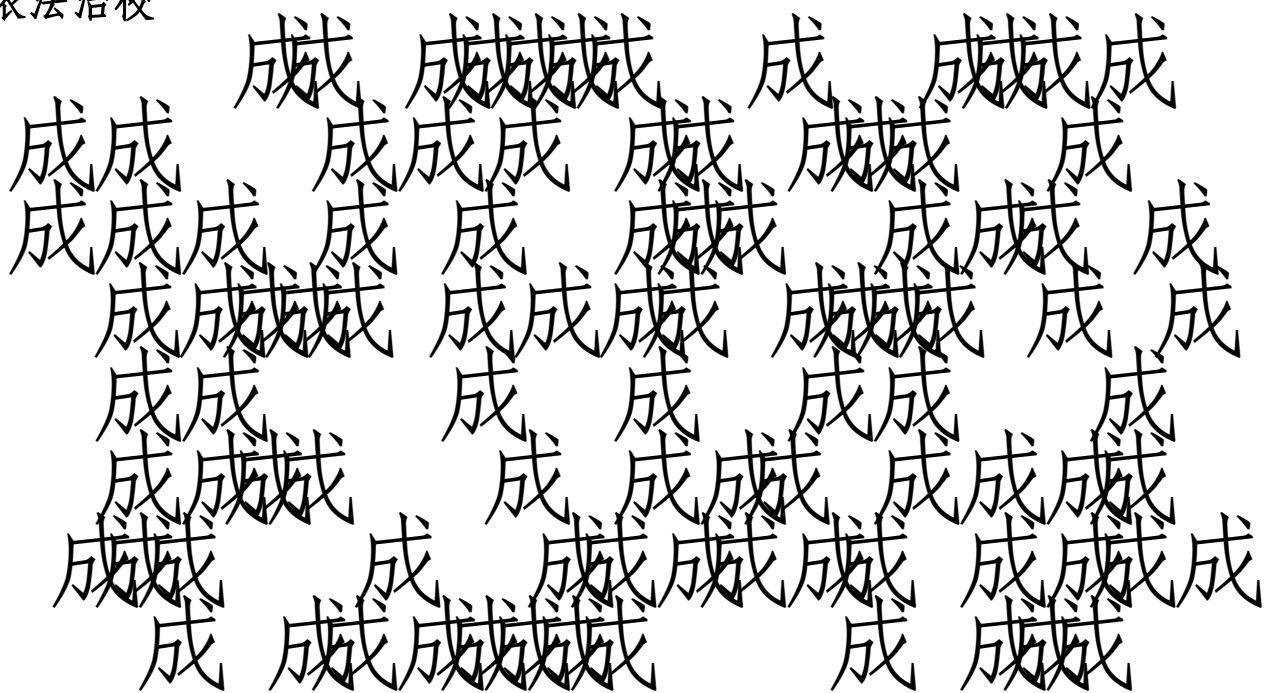 依法治校
成成成成成成成成成成成成
成成成成成成成成成成成
成成成成成成成成成成成成
成成成成成成成成成成成成成成成
成成成成成成成
成成成成成成成成成成成成
成成成成成成成成成成成成成成
成成成成成成成成成成成成